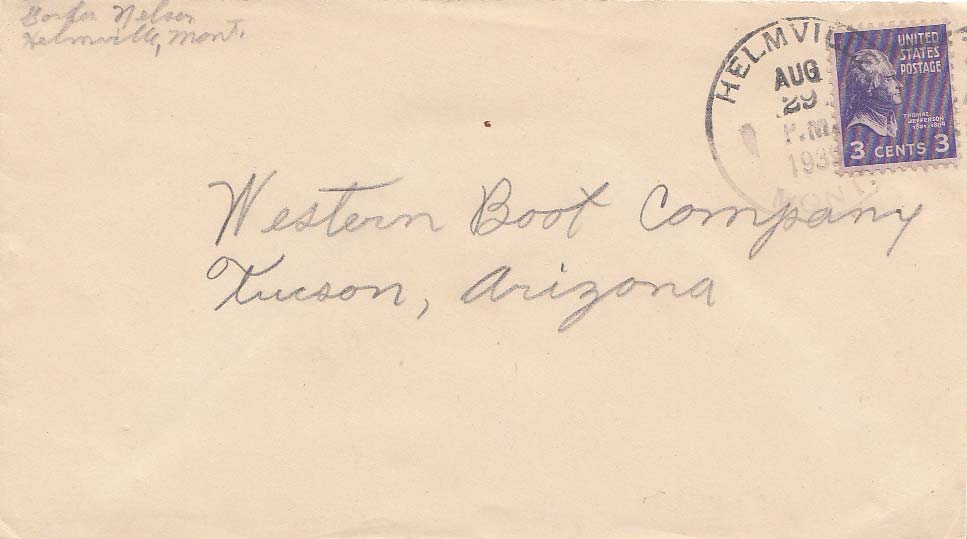 Nelson
Helmville, Mont.
HELMVILLE
AUG
29
P.M.
MONT.
UNITED
STATES
POSTAGE
THOMAS
JEFFERSON
1801-1809
3 CENTS 3
Western Boot Company
Tucson, Arizona